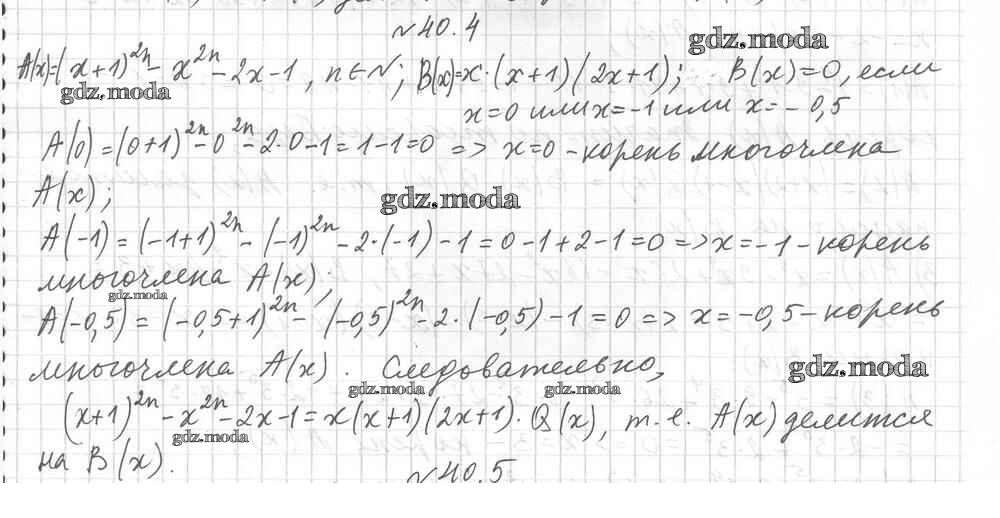 №40.4
gdz.moda
A(x)=(x+1)^2n - x^2n - 2x-1, n∈N; B(x)=x·(x+1)(2x+1); B(x)=0, если
gdz.moda
x=0 или x=-1 или x=-0,5
A(0)=(0+1)^2n - 0^2n - 2·0-1=1-1=0 => x=0 - корень многочлена
A(x);
gdz.moda
A(-1) = (-1+1)^2n - (-1)^2n - 2·(-1) - 1 = 0-1+2-1=0 => x=-1 - корень
многочлена A(x);
gdz.moda
A(-0,5) = (-0,5+1)^2n - (-0,5)^2n - 2·(-0,5) - 1 = 0 => x=-0,5 - корень
многочлена A(x). Следовательно,
gdz.moda
gdz.moda gdz.moda
(x+1)^2n - x^2n - 2x-1 = x(x+1)(2x+1)·Q(x), т.е. A(x) делится
gdz.moda
на B(x).
№40.5